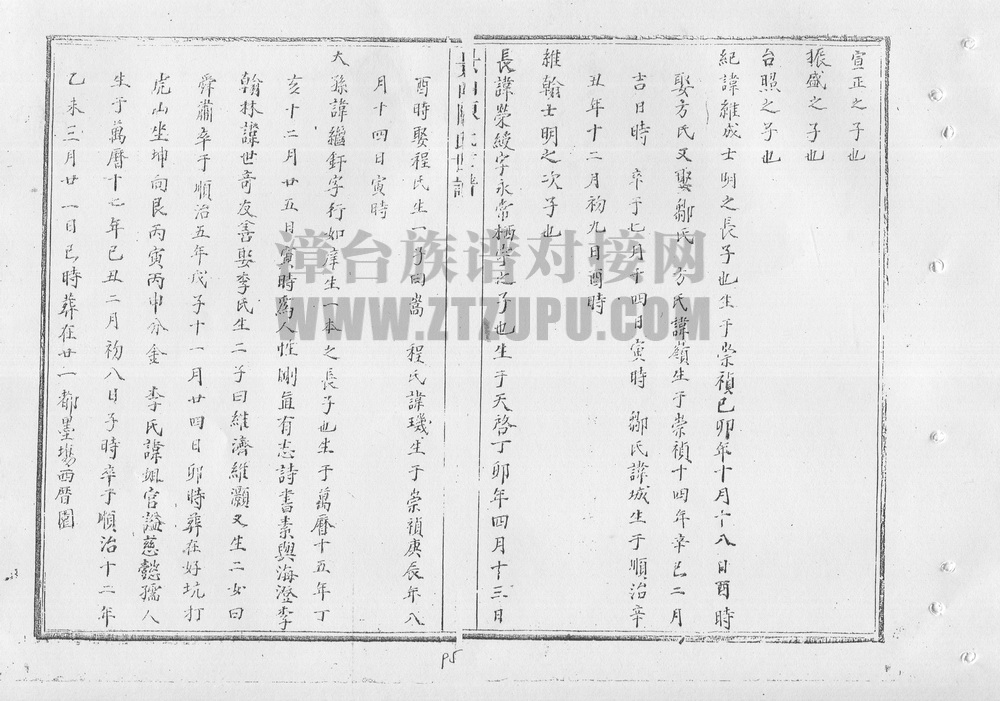 宣正之子也
振盛之子也
台照之子也
紀諱維成士明之長子也生于崇禎己卯年十月十八日酉時
娶方氏又娶鄒氏 方氏諱嶺生于崇禎十四年辛巳二月
吉日時 卒于七月十四日寅時 鄒氏諱城生于順治辛
丑年十二月初九日酉時
維翰士明之次子也
長諱榮綬字永常 之子也生于天啓丁卯年四月十三日
氏世譜
酉時娶程氏生一子曰嵩 程氏諱璣生于崇禎庚辰年八
月十四日寅時
大孫諱繼 字行如 生一本之長子也生于萬曆十五年丁
亥十二月廿五日寅時為人性剛直有志詩書素與海澄李
翰林諱世奇友善娶李氏生二子曰維濟維灝又生二女曰
舜瀟卒于順治五年戊子十一月廿四日卯時葬在好坑打
虎山坐坤向艮丙寅丙申分金 李氏諱 官謚慈懿孺人
生于萬曆十七年己丑二月初八日子時卒于順治十二年
乙未三月廿一日巳時葬在廿一都墨場西曆園
P5
漳台族谱对接网
WWW.ZTZUPU.COM